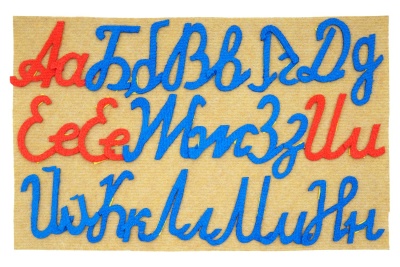 Аа Бб Вв Гг Дд
Ее Ёё Жж Зз Ии
Йй Кк Лл Мм Нн